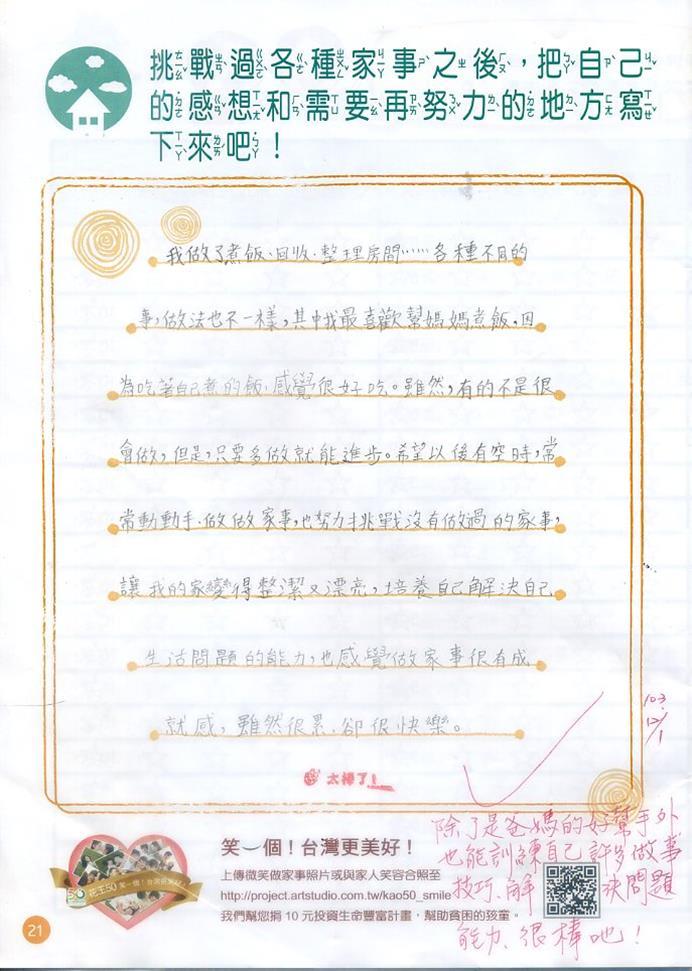 挑戰過各種家事之後，把自己
的感想和需要再努力的地方寫
下來吧！
我做了煮飯、回收、整理房間……各種不同的
事，做法也不一樣，其中我最喜歡幫媽媽煮飯，因
為吃著自己煮的飯，感覺很好吃。雖然，有的不是很
會做，但是，只要多做就能進步。希望以後有空時，常
常動動手、做做家事，也努力挑戰沒有做過的家事，
讓我的家變得整潔又漂亮，培養自己解決自己
生活問題的能力，也感覺做家事很有成
就感，雖然很累，卻很快樂。
103.
12/1
太棒了！
除了是爸媽的好幫手外
也能訓練自己許多做事
技巧、解決問題
能力、很棒吧！
花王50 笑一個！台灣更美好！
笑一個！台灣更美好！
上傳微笑做家事照片或與家人笑容合照至
http://project.artstudio.com.tw/kao50_smile
我們幫您捐10元投資生命豐富計畫，幫助貧困的孩童。
21